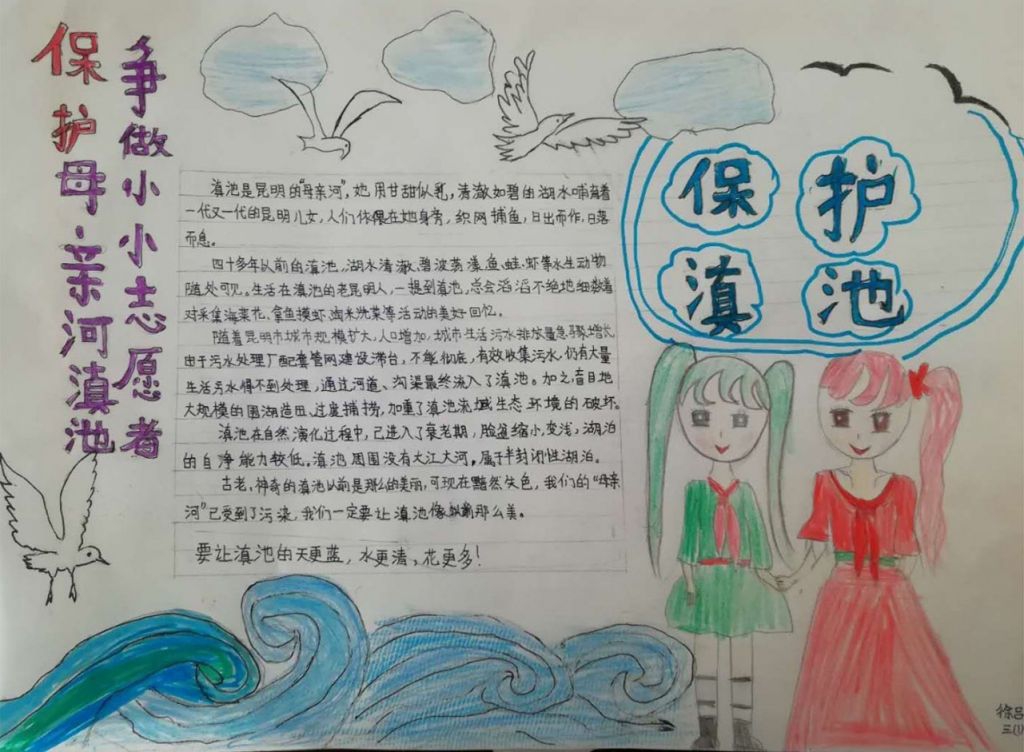 保护母亲河滇池
争做小小志愿者
保护
滇池
滇池是昆明的“母亲河”,她用甘甜似乳,清澈如碧的湖水哺育着
一代又一代的昆明儿女,人们依偎在她身旁,织网捕鱼,日出而作,日落
而息。
四十多年以前的滇池,湖水清澈、碧波荡漾,鱼、蛙、虾等水生动物
随处可见。生活在滇池的老昆明人,一提到滇池,总会滔滔不绝地细数着
对采集海菜花、拿鱼摸虾、淘米洗菜等活动的美好回忆。
随着昆明市城市规模扩大,人口增加,城市生活污水排放量急骤增长,
由于污水处理厂配套管网建设滞后,不能彻底,有效收集污水,仍有大量
生活污水得不到处理,通过河道、沟渠最终流入了滇池。加之,盲目地
大规模的围湖造田,过度捕捞,加重了滇池流域生态环境的破坏。
滇池在自然演化过程中,已进入了衰老期,脸盆缩小,变浅,湖泊
的自净能力较低。滇池周围没有大江大河,属于半封闭性湖泊。
古老,神奇的滇池以前是那么的美丽,可现在黯然失色,我们的“母亲
河”已受到了污染,我们一定要让滇池像以前那么美。
要让滇池的天更蓝,水更清,花更多!
徐吕
三(1)